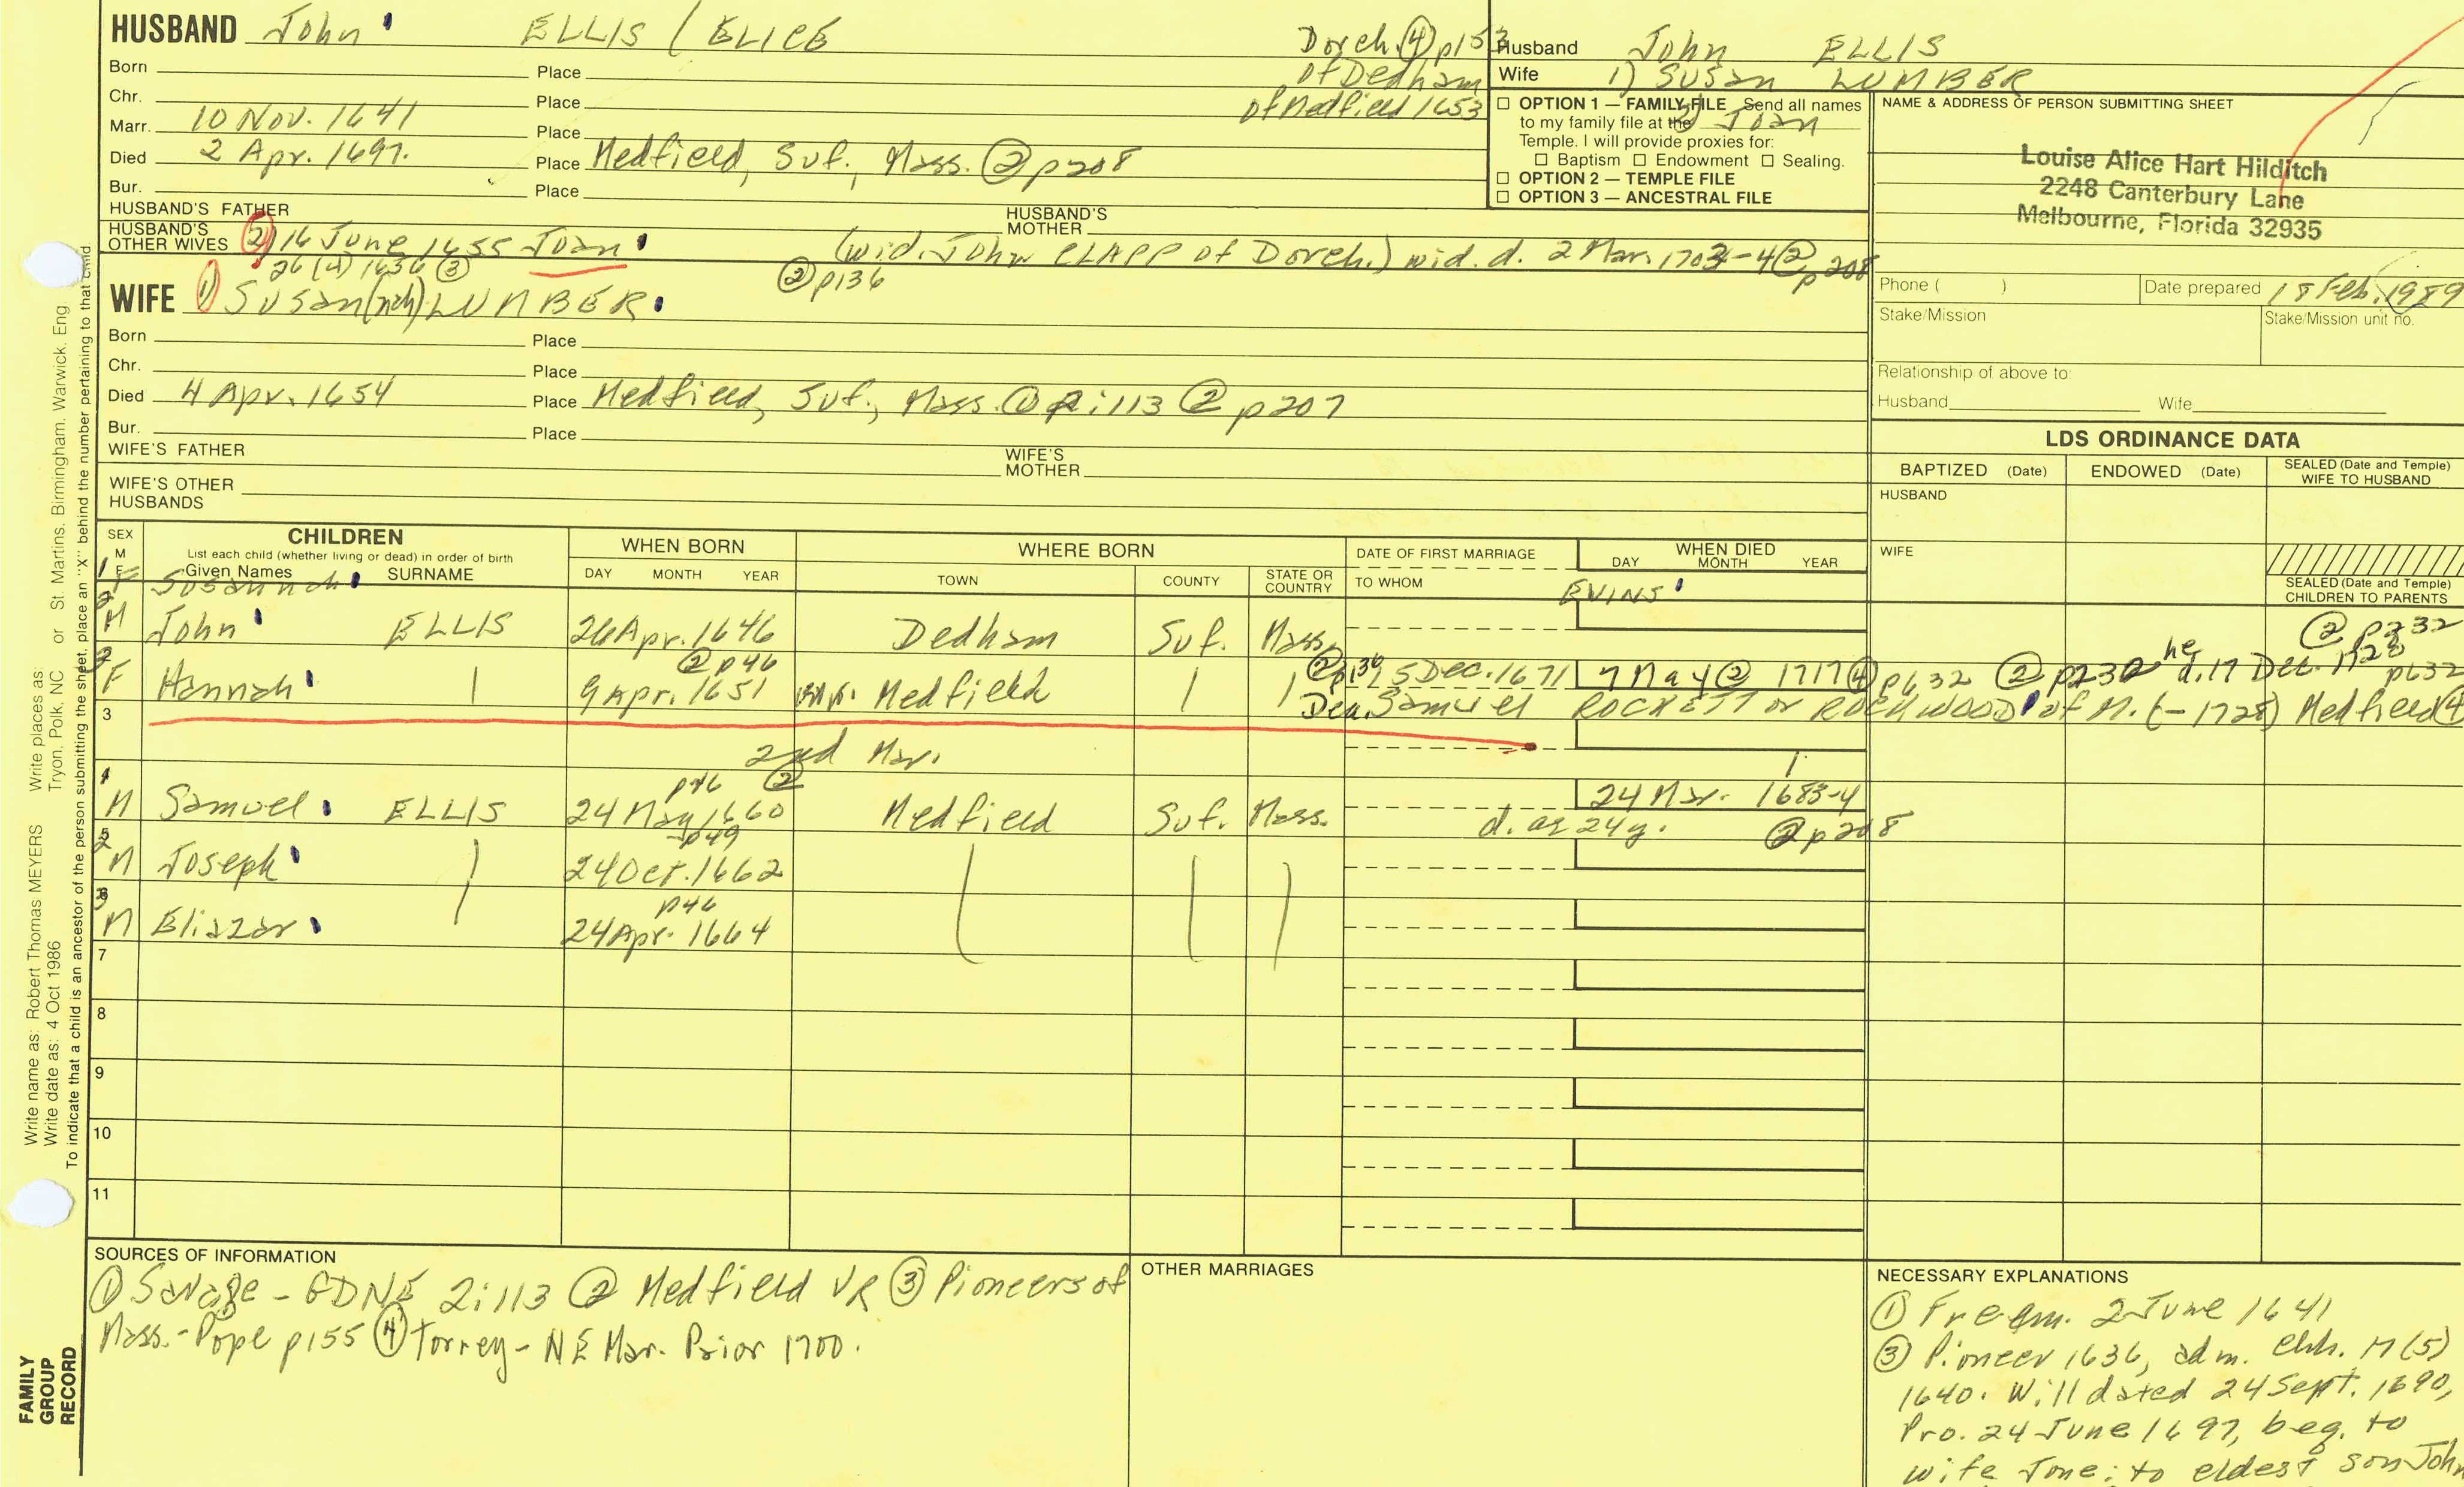 HUSBAND John ELLIS / ELICE Dorch. ④ p153
Born Place of Dedham
Chr. Place of Medfield 1653
Marr. 10 Nov. 1641 Place
Died 2 Apr. 1697. Place Medfield, Suf., Mass. ② p208
Bur. Place
HUSBAND'S FATHER HUSBAND'S MOTHER
HUSBAND'S OTHER WIVES 2) 16 June 1655 Joan (wid. John CLAPP of Dorch.) wid. d. 2 Mar. 1703-4 ② p208
26 (4) 1636 ③ ② p136
WIFE 1) Susan(nah) LUMBER
Born Place
Chr. Place
Died 4 Apr. 1654 Place Medfield, Suf., Mass. ① 2:113 ② p207
Bur. Place
WIFE'S FATHER WIFE'S MOTHER
WIFE'S OTHER HUSBANDS
Husband John ELLIS
Wife 1) Susan LUMBER
2) Joan
☐ OPTION 1 — FAMILY FILE Send all names
to my family file at the
Temple. I will provide proxies for:
☐ Baptism ☐ Endowment ☐ Sealing.
☐ OPTION 2 — TEMPLE FILE
☐ OPTION 3 — ANCESTRAL FILE
NAME & ADDRESS OF PERSON SUBMITTING SHEET
Louise Alice Hart Hilditch
2248 Canterbury Lane
Melbourne, Florida 32935
Phone ( ) Date prepared 18 Feb. 1989
Stake/Mission Stake/Mission unit no.
Relationship of above to:
Husband Wife
LDS ORDINANCE DATA
BAPTIZED (Date) ENDOWED (Date) SEALED (Date and Temple) WIFE TO HUSBAND
HUSBAND
WIFE
SEALED (Date and Temple) CHILDREN TO PARENTS
SEX M F CHILDREN
List each child (whether living or dead) in order of birth
Given Names SURNAME
WHEN BORN
DAY MONTH YEAR
WHERE BORN
TOWN COUNTY STATE OR COUNTRY
DATE OF FIRST MARRIAGE
TO WHOM
WHEN DIED
DAY MONTH YEAR
1 F Susannah EVINS
2 M John ELLIS 26 Apr. 1646 Dedham Suf. Mass. ② p232
② p46 ② p136
F Hannah 9 Apr. 1651 Medfield 5 Dec. 1671 7 May ② 1717 ④ p632 ② p230 he d. 17 Dec. 1728 p632
3 Dea. Samuel ROCKETT or ROCKWOOD of M. (-1728) Medfield ④
2nd Mar.
p46 ②
4 M Samuel ELLIS 24 May 1660 Medfield Suf. Mass. 24 Mar. 1683-4
d. ae 24y. ② p208
p49
5 M Joseph 24 Oct. 1662
p46
6 M Eliazar 24 Apr. 1664
7
8
9
10
11
SOURCES OF INFORMATION
① Savage - GDNE 2:113 ② Medfield VR ③ Pioneers of
Mass. - Pope p155 ④ Torrey - NE Mar. Prior 1700.
OTHER MARRIAGES
NECESSARY EXPLANATIONS
① Freem. 2 June 1641
③ Pioneer 1636, adm. chh. 17 (5)
1640. Will dated 24 Sept. 1690,
Pro. 24 June 1697, beq. to
wife Jone; to eldest son John
Write name as: Robert Thomas MEYERS Write places as: Tryon, Polk, NC or St. Martins, Birmingham, Warwick, Eng
Write date as: 4 Oct 1986
To indicate that a child is an ancestor of the person submitting the sheet, place an "X" behind the number pertaining to that child
FAMILY GROUP RECORD